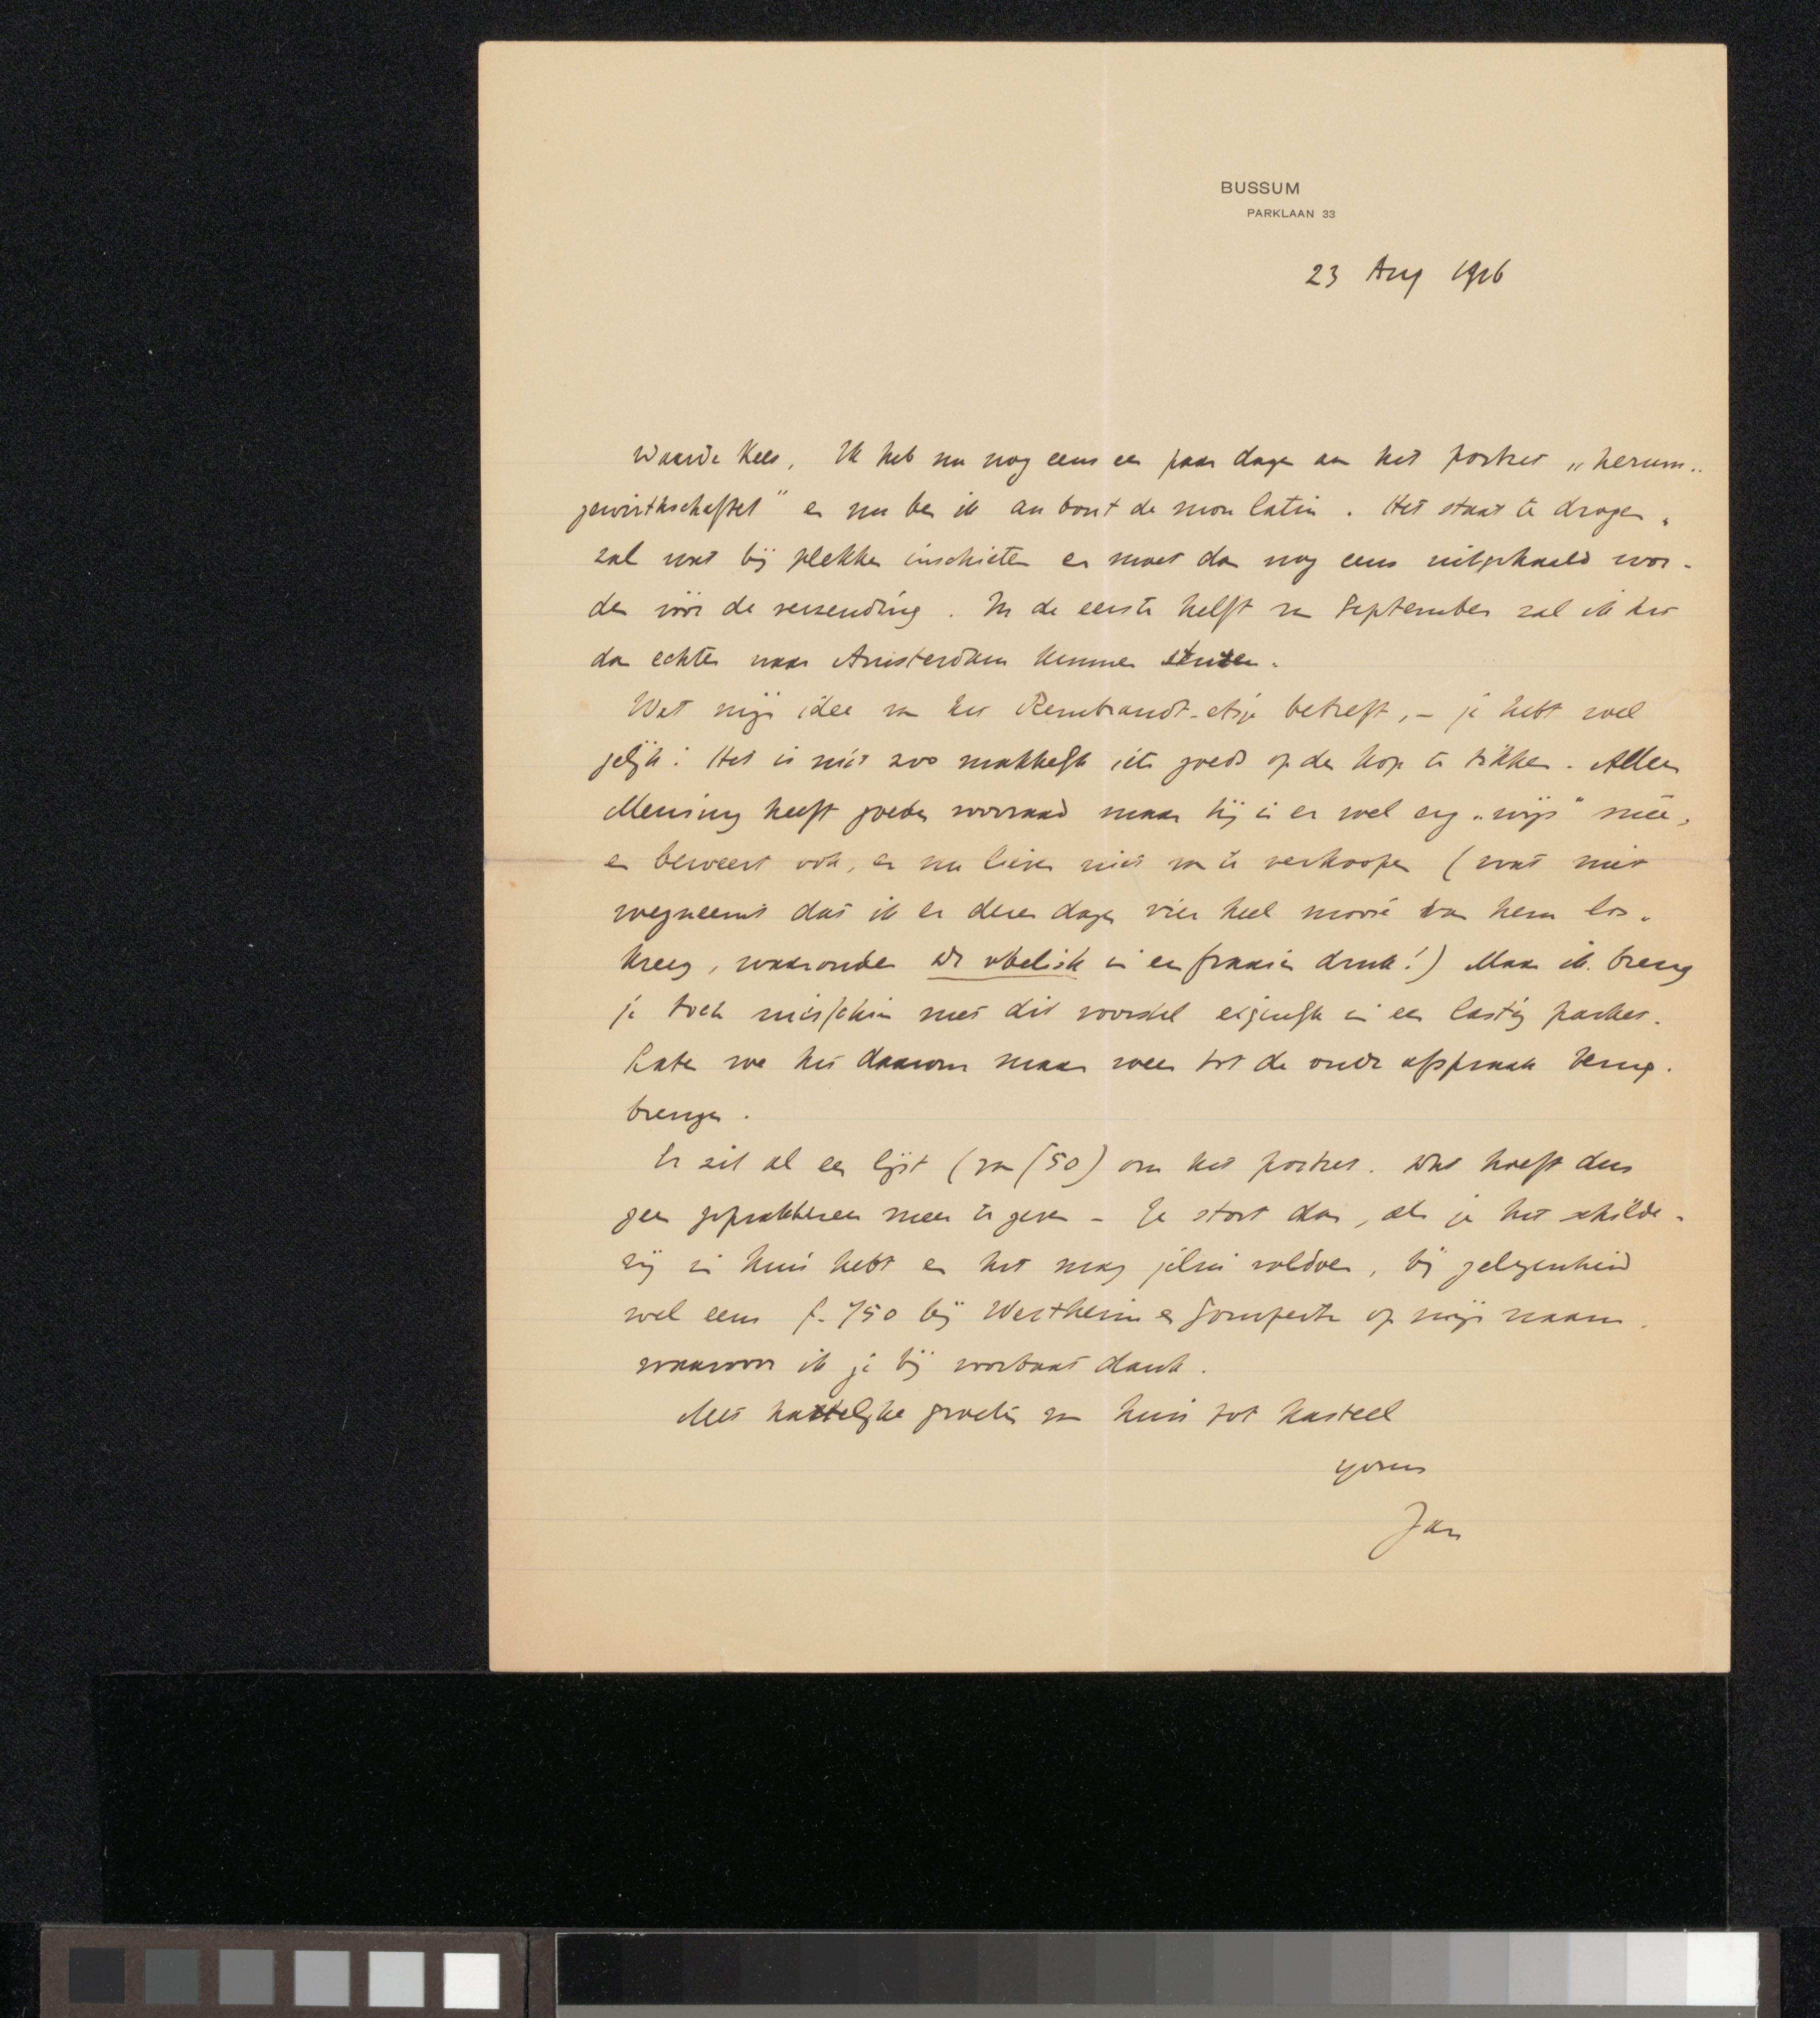 BUSSUM
PARKLAAN 33
23 Aug 1926
Waarde Kees, Ik heb nu nog eens een paar dagen aan het portret „herum-
gewirthschaftet" en nu ben ik au bout de mon latin. Het staat te drogen,
zal wat bij plekken inschieten en moet dan nog eens uitgehaald wor-
den vóór de verzending. In de eerste helft van September zal ik het
dan echter naar Amsterdam kunnen sturen.
Wat mijn idee van het Rembrandt-etsje betreft, – je hebt wel
gelijk: Het is niet zoo makkelijk iets goeds op den kop te tikken. Alleen
Mensing heeft goeden voorraad maar hij is er wel erg „wijs" mee,
en beweert ook, er nu liever niet van te verkoopen (wat niet
wegneemt dat ik er dezer dagen vier heel mooie van hem los-
kreeg, waaronder de obelisk in een fraaien druk!) Maar ik breng
je toch misschien met dit voorstel eigenlijk in een lastig parket.
Laten we het daarom maar weer tot de oude afspraak terug-
brengen.
Er zit al een lijst (van f50) om het portret. Dat hoeft dus
geen meer te geven – Je stort dan, als je het schilde-
rij in huis hebt en het mag jelui voldoen, bij gelegenheid
wel eens f. 750 bij Wertheim en Gompertz op mijn naam.
waarvoor ik je bij voorbaat dank.
Met hartelijke groeten van huis tot kasteel
yours
Jan